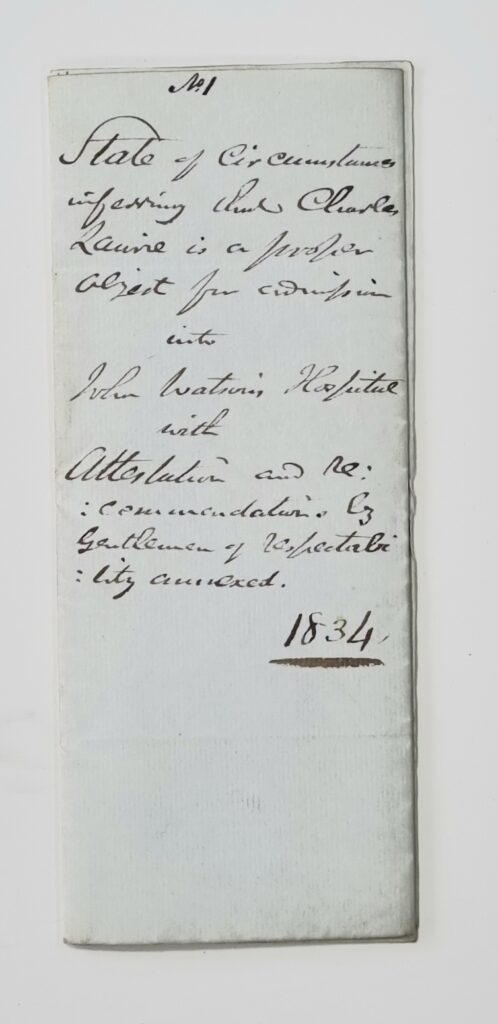 No. 1
State of Circumstances
inferring that Charles
Laurie is a proper
object for admission
into
John Watson's Hospital
with
Attestation and Re:
: commendations by
Gentlemen of respectabi
: lity annexed.
1834,